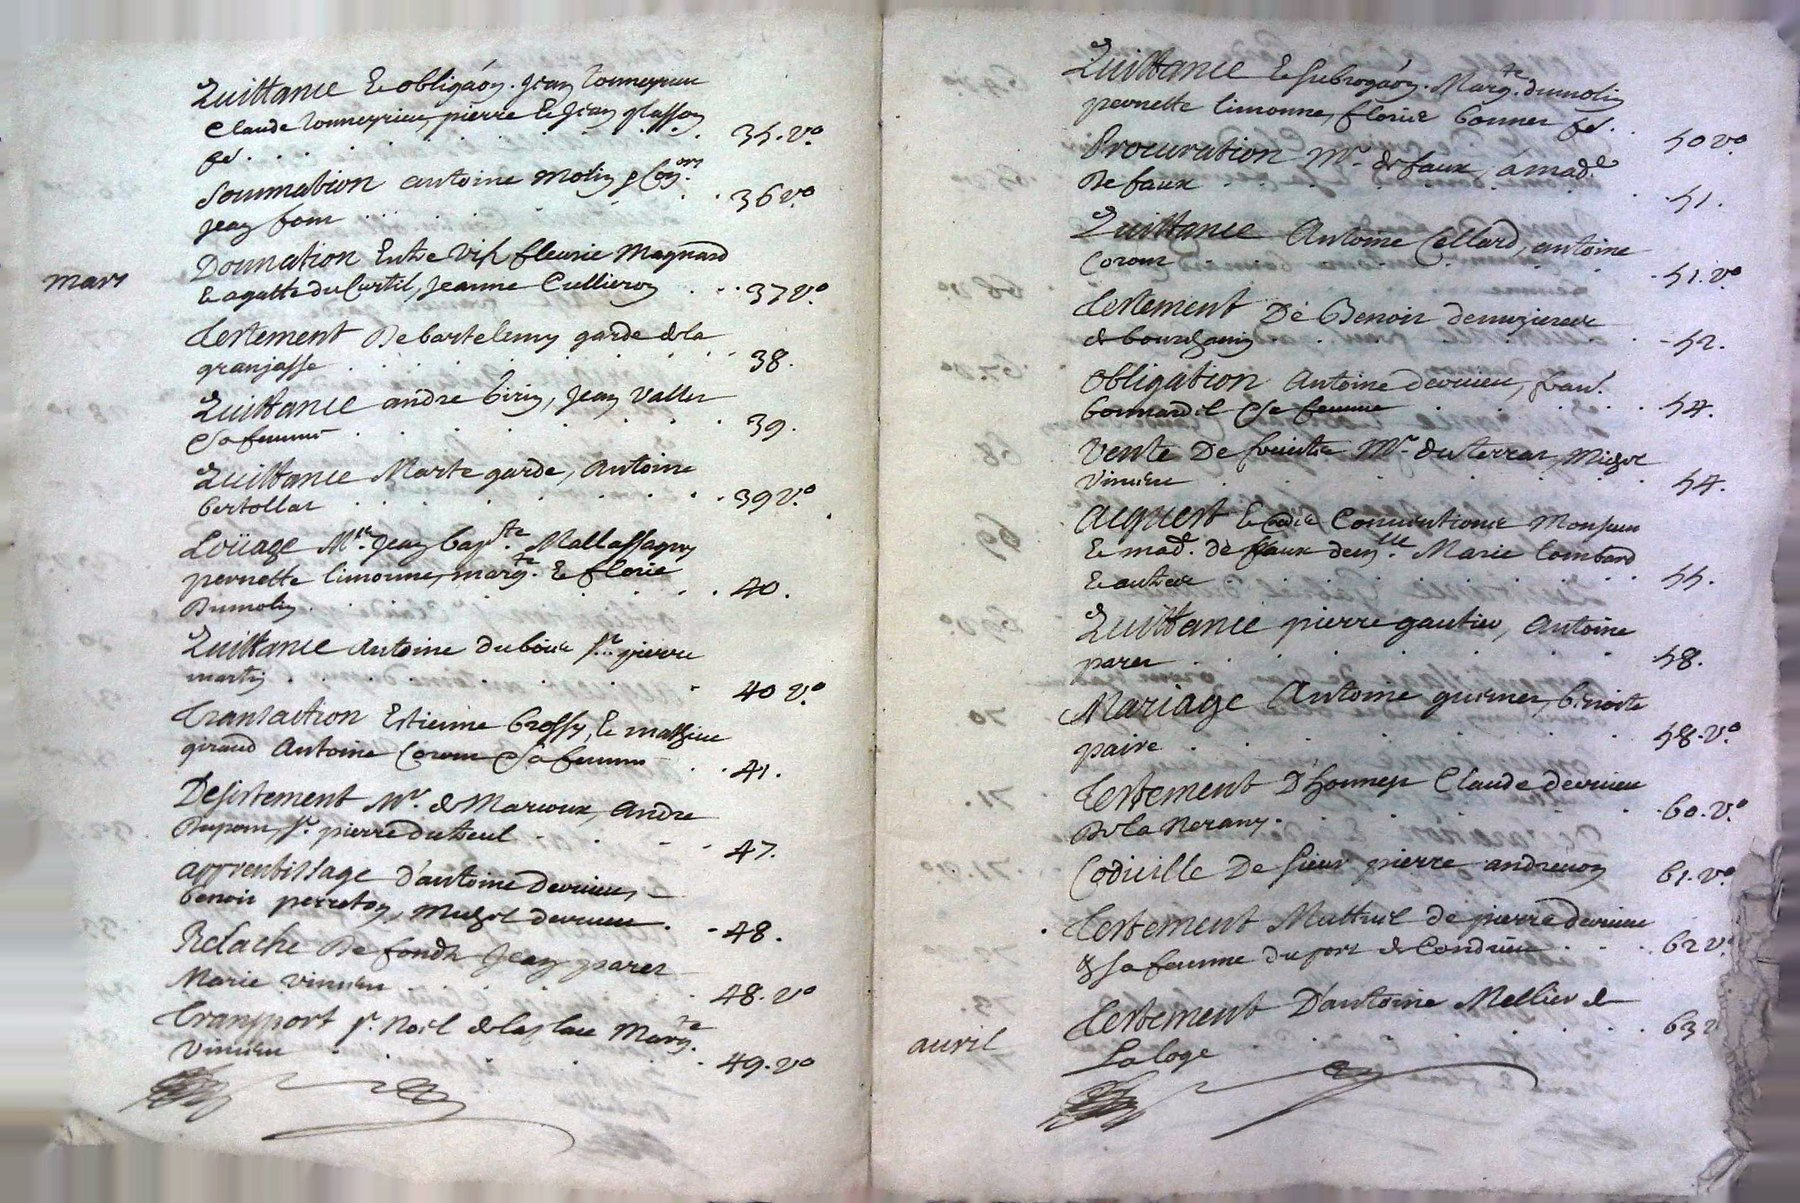 Quittance & obligaōn. Jean Tonneyrieu
Claude Tonneyrieu, pierre & Jean glasson
fes. . . . 35. vo.
Sommation antoine Molin p Con.on
Jean four . . . 36 vo.
Donnation Entre vifs, fleurie Magnard
mars
& agatte du Curtil, Jeanne Cullieron . . 37 vo.
Testement De bartelemy garde de la
granjasse . . . 38.
Quittance andre birin, Jean Valler
& sa femme . . . 39.
Quittance Marte garde, Antoine
bertollat . . . 39 vo.
Loüage Mre. Jean bap.te Mallassagny
pernette limonne, marg.te & florie
Dumolin . . . 40.
Quittance Antoine duboue sr. pierre
martin . . . 40 vo.
Transaction Estienne brossy, & mathieu
giraud Antoine Coron & sa femme . . 41.
Desistement Mr. de Marioux, Andre
Dupont, sr. pierre dutreul . . . 47.
apprentissage d'antoine devrieu,
benoit perreton, Michel devrieu . . 48.
Relache De fonds Jean paret
Marie vinieu . . . 48. vo
Transport sr. Noel de la place Marg.te
Vinieu . . . 49. vo
Quittance & subrogaōn. Marg.te dumolin
pernette limonne, florie bonnet fes. . 50 vo.
Procuration Mr. de faux, a mad.e
De faux . . . 51.
Quittance Antoine Cellard, antoine
Coront . . . 51. vo.
Testement De Benoit
de bourchanin . . . 52.
Obligation Antoine devrieu,
bonnardel & sa femme . . . 54.
Vente De Mr. duterrar, Michel
Vinieu . . . 54.
Acquest Monsieur
& mad. de faux dem.lle Marie Lombard
& autres . . . 55.
Quittance pierre gautier, Antoine
paret . . . 58.
Mariage Antoine guinet, benoite
paire . . . 58. vo.
Testement D'honneste Claude devrieu
De la Nerany. 60. vo.
Codicille De sieur pierre andrevon 61. vo.
Testement Mutuel de pierre devrieu
& sa femme du port de Condrieu . . . 62 vo.
Testement D'antoine Mellier de
avril
La loge . . . 63 v